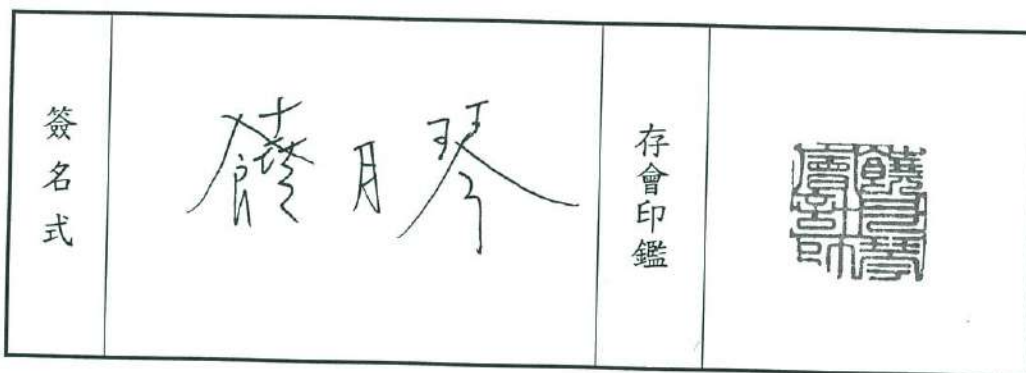 簽名式
饒月琴
存會印鑑
饒月琴
會計師